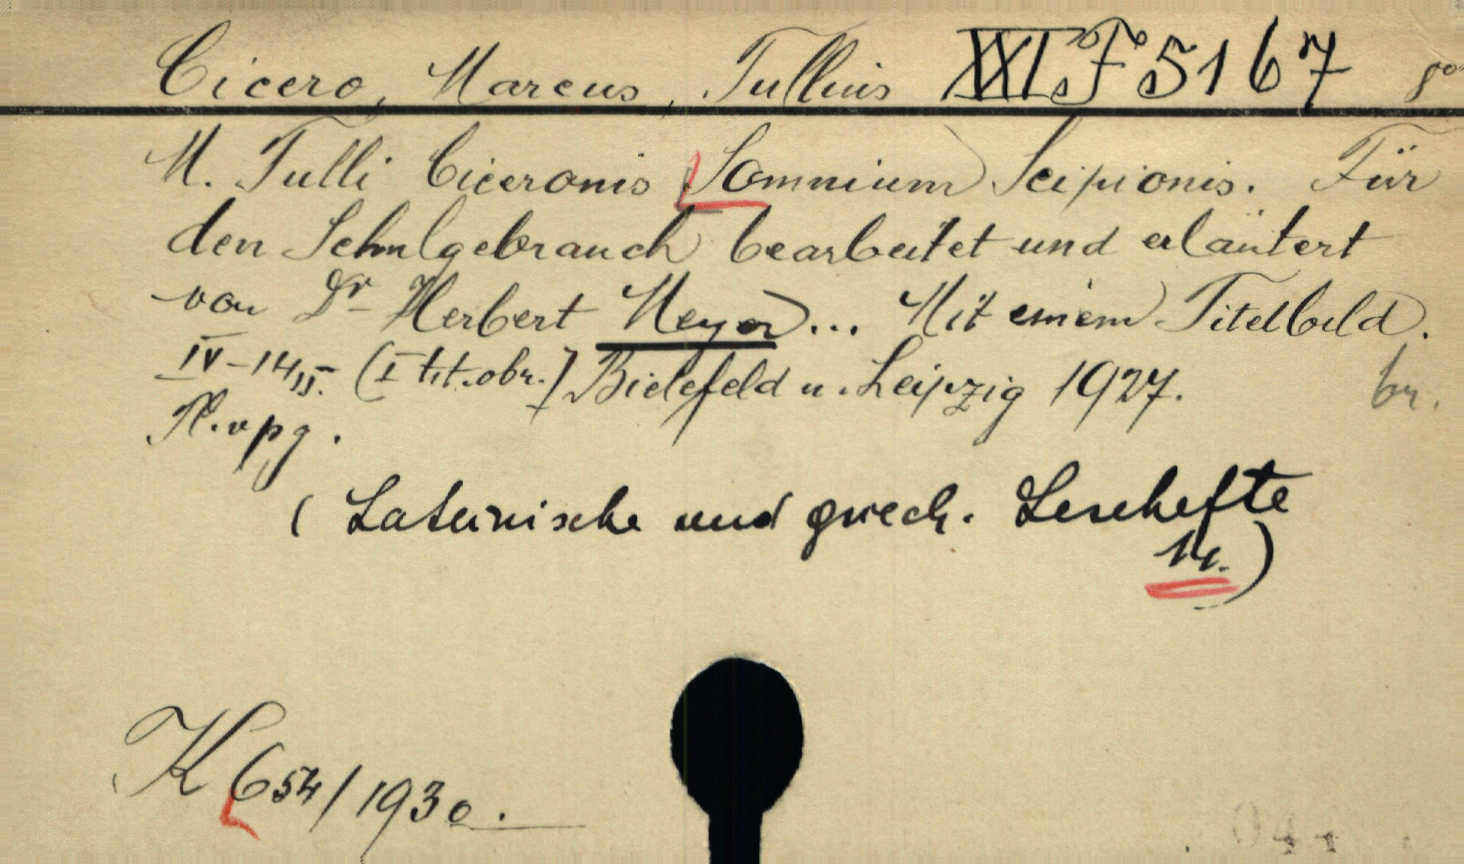 Cicero, Marcus, Tullius XXI.F 5167 8°
M. Tulli Ciceronis Somnium Scipionis. Für
den Schulgebrauch bearbeitet und erläutert
von Dr Herbert Meyer... Mit einem Titelbild.
IV-14 s. (I tit.obr.) Bielefeld u. Leipzig 1927. br.
(Lateinische und griech. Lesehefte
14.)
K 654/1930.